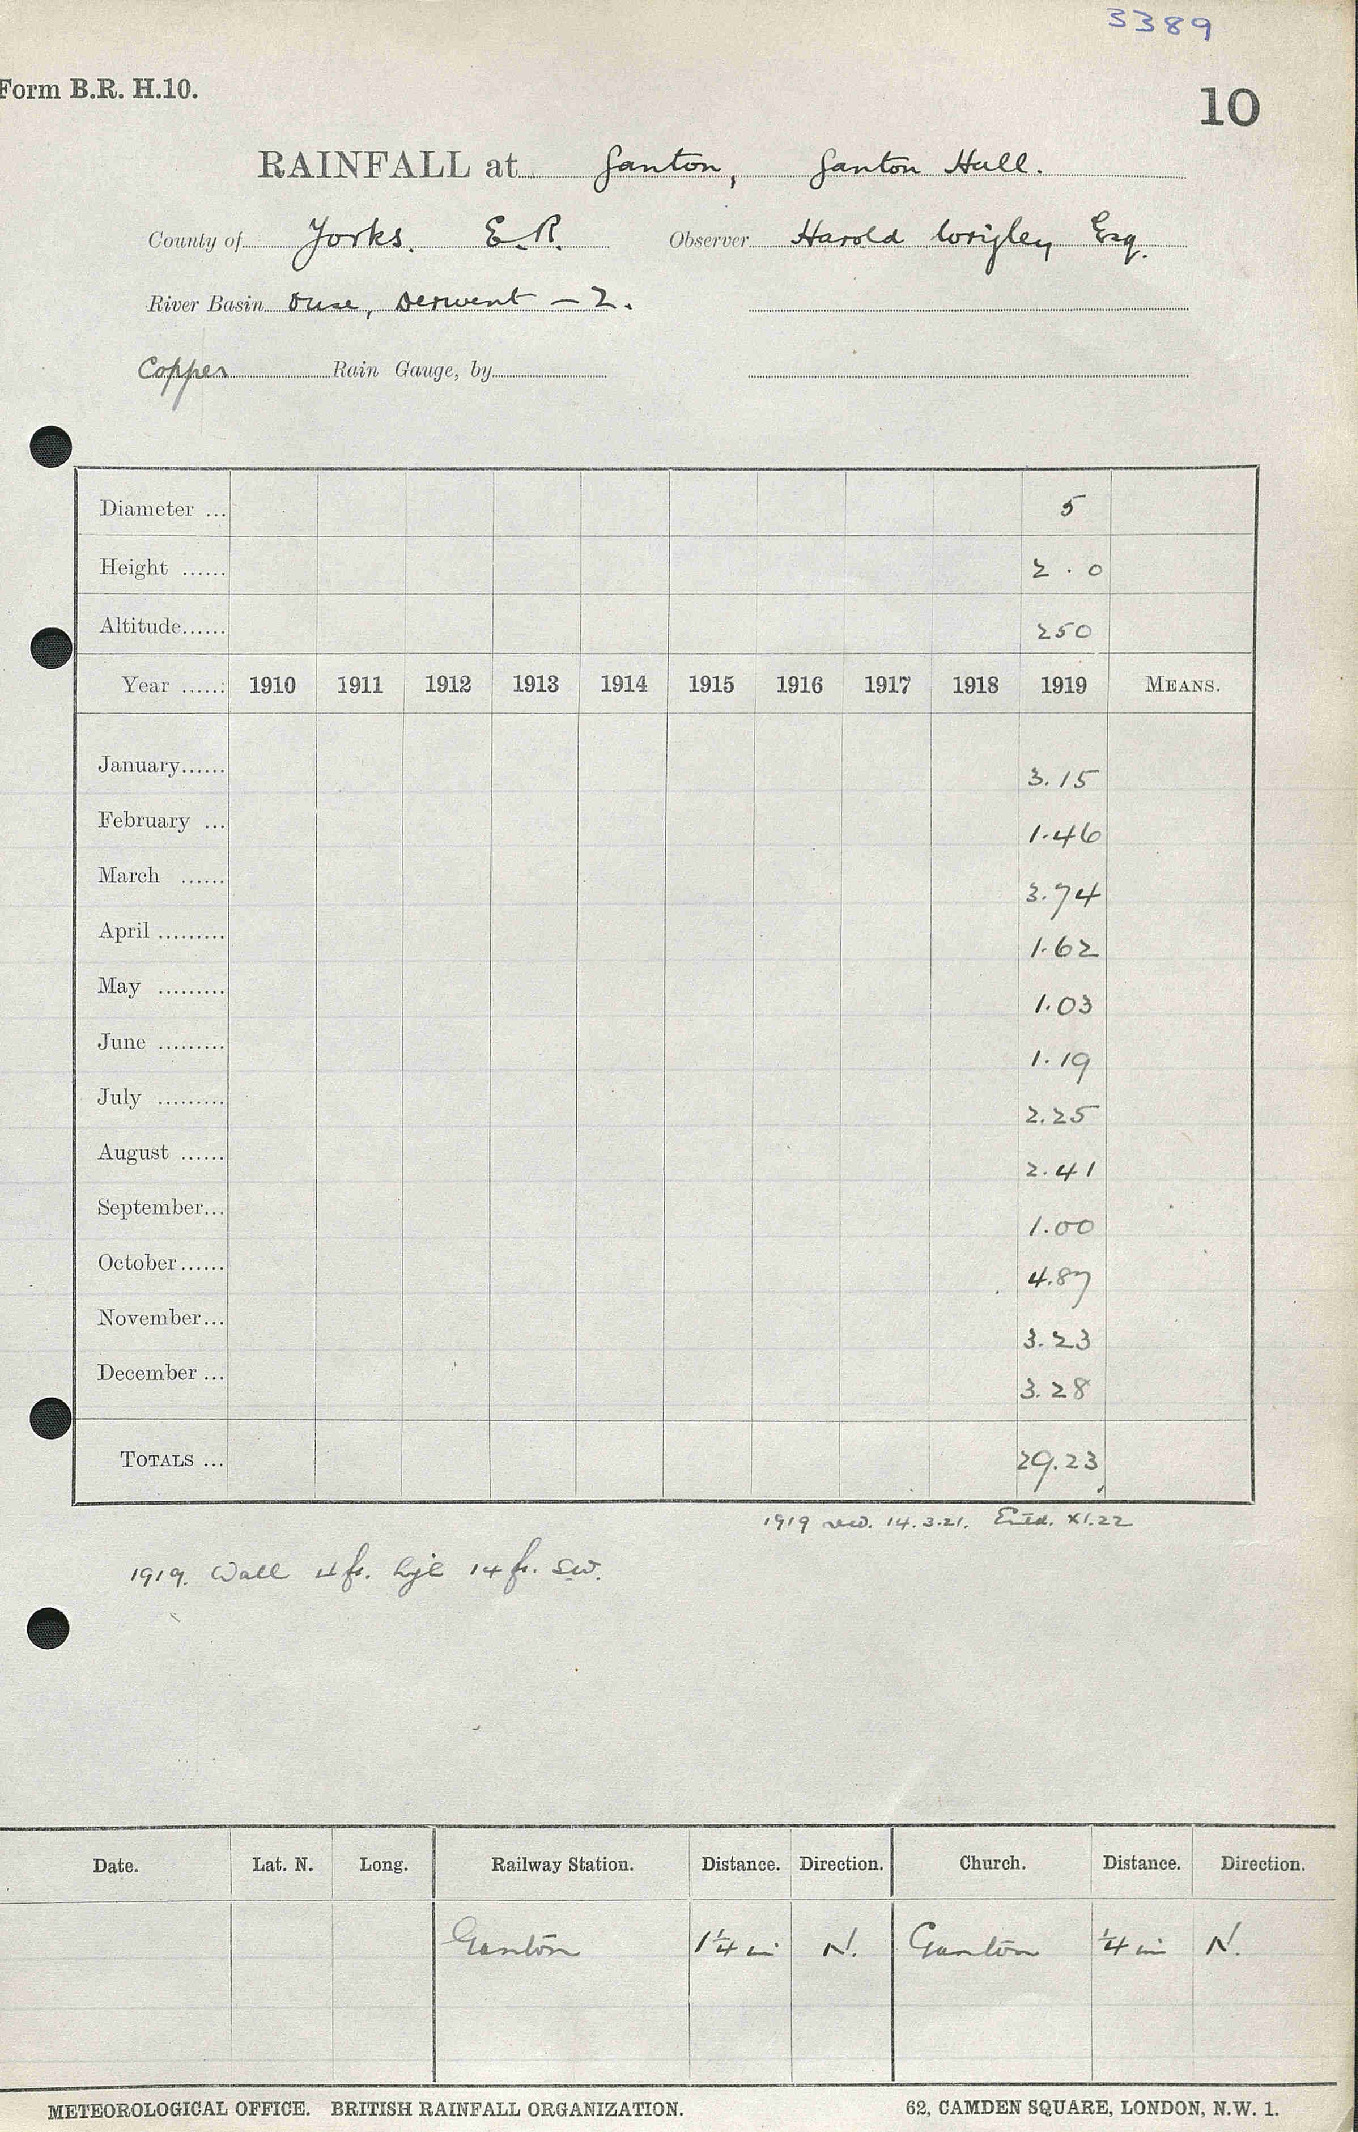 3389
Form B.R. H.10.
10
RAINFALL at Ganton, Ganton Hall.
County of Yorks. E.R. Observer Harold Wrigley Esq.
River Basin Ouse, Derwent - 2.
Copper Rain Gauge, by
Diameter ... 5
Height ...... 2.0
Altitude...... 250
Year ...... 1910 1911 1912 1913 1914 1915 1916 1917 1918 1919 MEANS.
January...... 3.15
February ... 1.46
March ...... 3.74
April ......... 1.62
May ......... 1.03
June ......... 1.19
July ......... 2.25
August ...... 2.41
September... 1.00
October...... 4.87
November... 3.23
December ... 3.28
TOTALS ... 29.23
1919 14.3.21. Entd. XI.22
1919. Wall 4 ft. high 14 ft. SW.
Date. Lat. N. Long. Railway Station. Distance. Direction. Church. Distance. Direction.
Ganton 1¼ m N. Ganton ¼ m N.
METEOROLOGICAL OFFICE. BRITISH RAINFALL ORGANIZATION. 62, CAMDEN SQUARE, LONDON, N.W. 1.